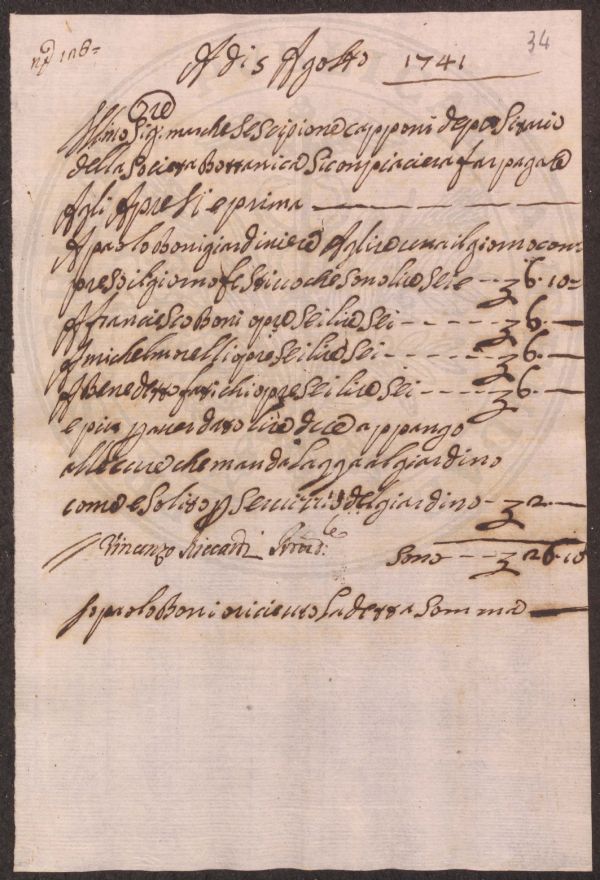 nº 106=
34
A di 5 Agosto 1741
Illmo Sigre marchese Scipione Capponi depositario
della Società Bottanica Si conpiacierà far pagare
Agli Apresi e prima
A paolo Boni giardiniere A lire una il giorno con
preso il giorno festivo che sono lire Sete 6.10=
A franciesco Boni opre Sei lire Sei 6.—
A michel opre Sei lire Sei 6.—
A Benedetto opre Sei lire Sei 6.—
e più p aver dato lire due a pagno
che manda lagga al giardino
come e Solito p Servizio del giardino 2.—
Vincenzo Riccardi Provd:e Sono 26.10
Io paolo Boni ò riceuto La detta Somma